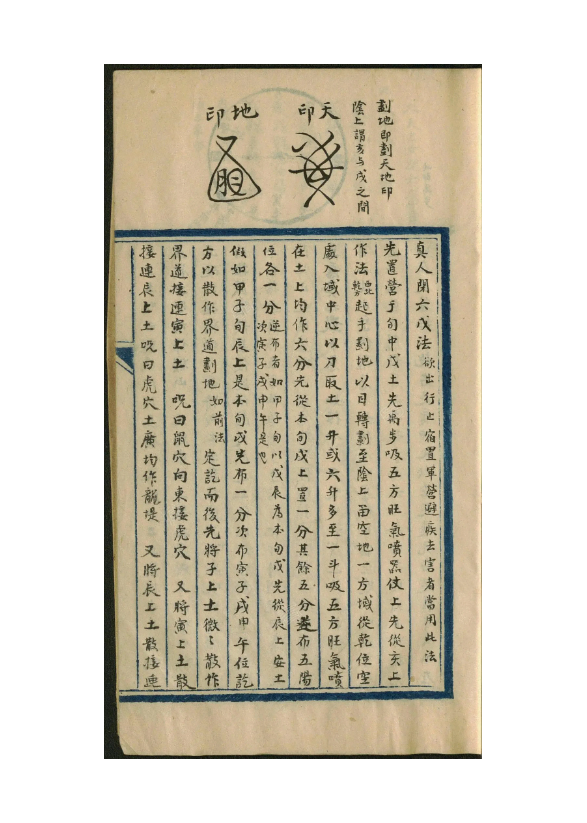 劃地即劃天地印
陰上謂亥与戌之間
天印
地印
真人閉六戊法 欲出行止宿置軍營避疾去害者當用此法
先置營于旬中戊土先禹步吸五方旺氣噴器仗上先從亥上
作法 西北乾方 起手劃地以日轉劃至陰上留空地一方域從乾位空
處入域中心以刀取土一升或六升多至一斗吸五方旺氣噴
在土上均作六分先從本旬戊上置一分其餘五分逆布五陽
位各一分 逆布者如甲子旬以戊辰為本旬戊先從辰上安土
次寅子戌申午是也
假如甲子旬辰上是本旬戊先布一分次布寅子戌申午位訖
方以散作界道劃地 如前法 定訖而後先將子上土微〻散作
界道接連寅上土 呪曰鼠穴向東接虎穴 又將寅上土散
接連辰上土呪曰虎穴土廣均作龍堤 又將辰上土散接連